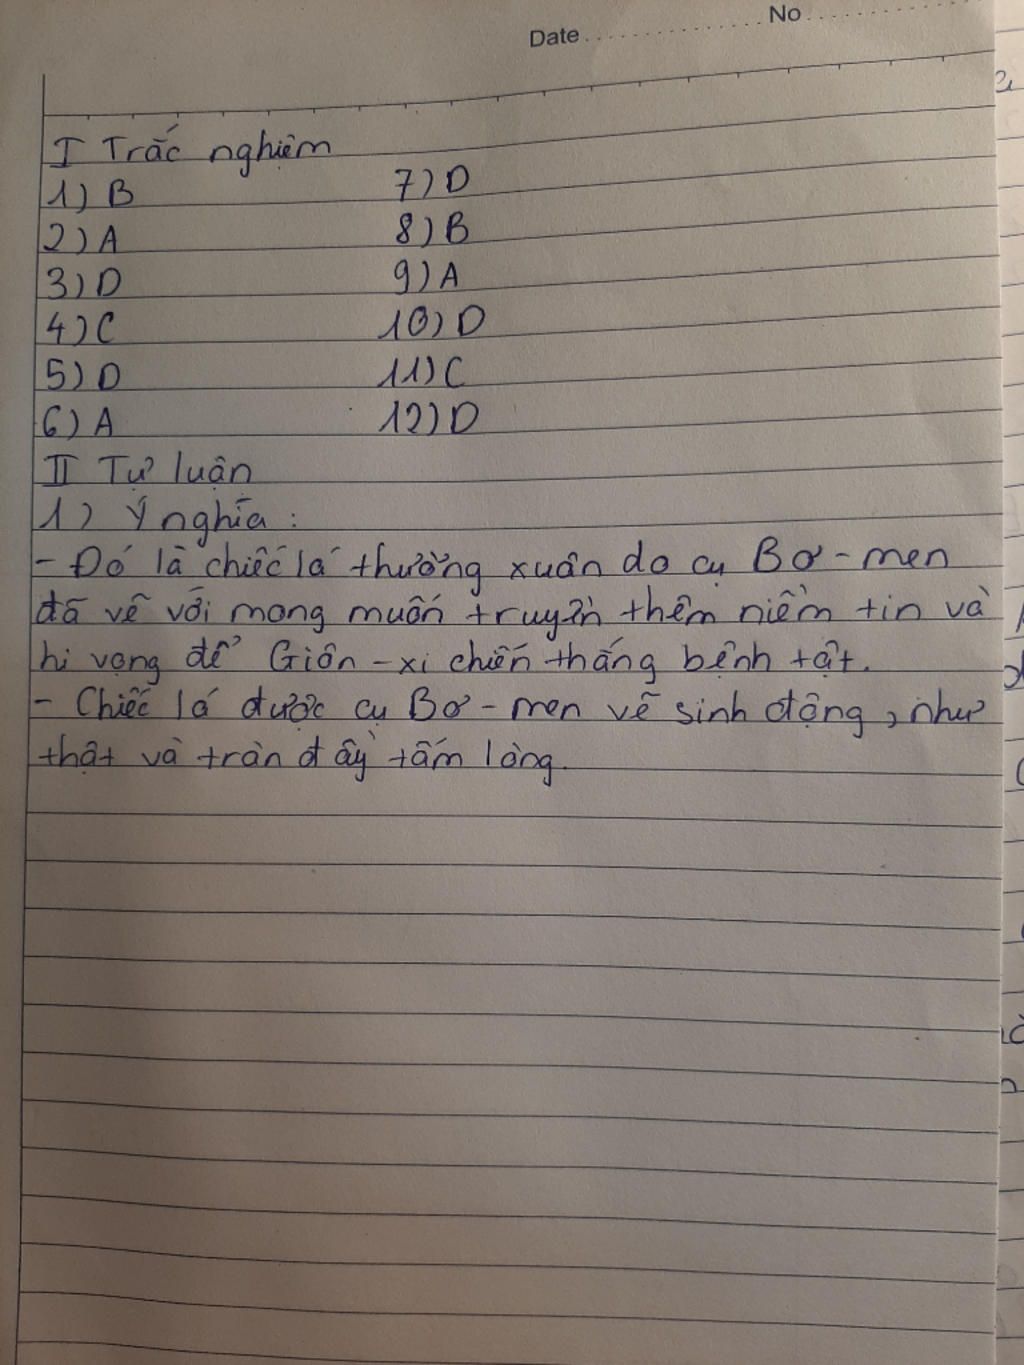 Date.............. No..............
I Trắc nghiệm
1) B 7) D
2) A 8) B
3) D 9) A
4) C 10) D
5) D 11) C
6) A 12) D
II Tự luận
1) Ý nghĩa :
- Đó là chiếc lá thường xuân do cụ Bơ-men
đã vẽ với mong muốn truyền thêm niềm tin và
hi vọng để Giôn-xi chiến thắng bệnh tật.
- Chiếc lá được cụ Bơ-men vẽ sinh động, như
thật và tràn đầy tấm lòng.